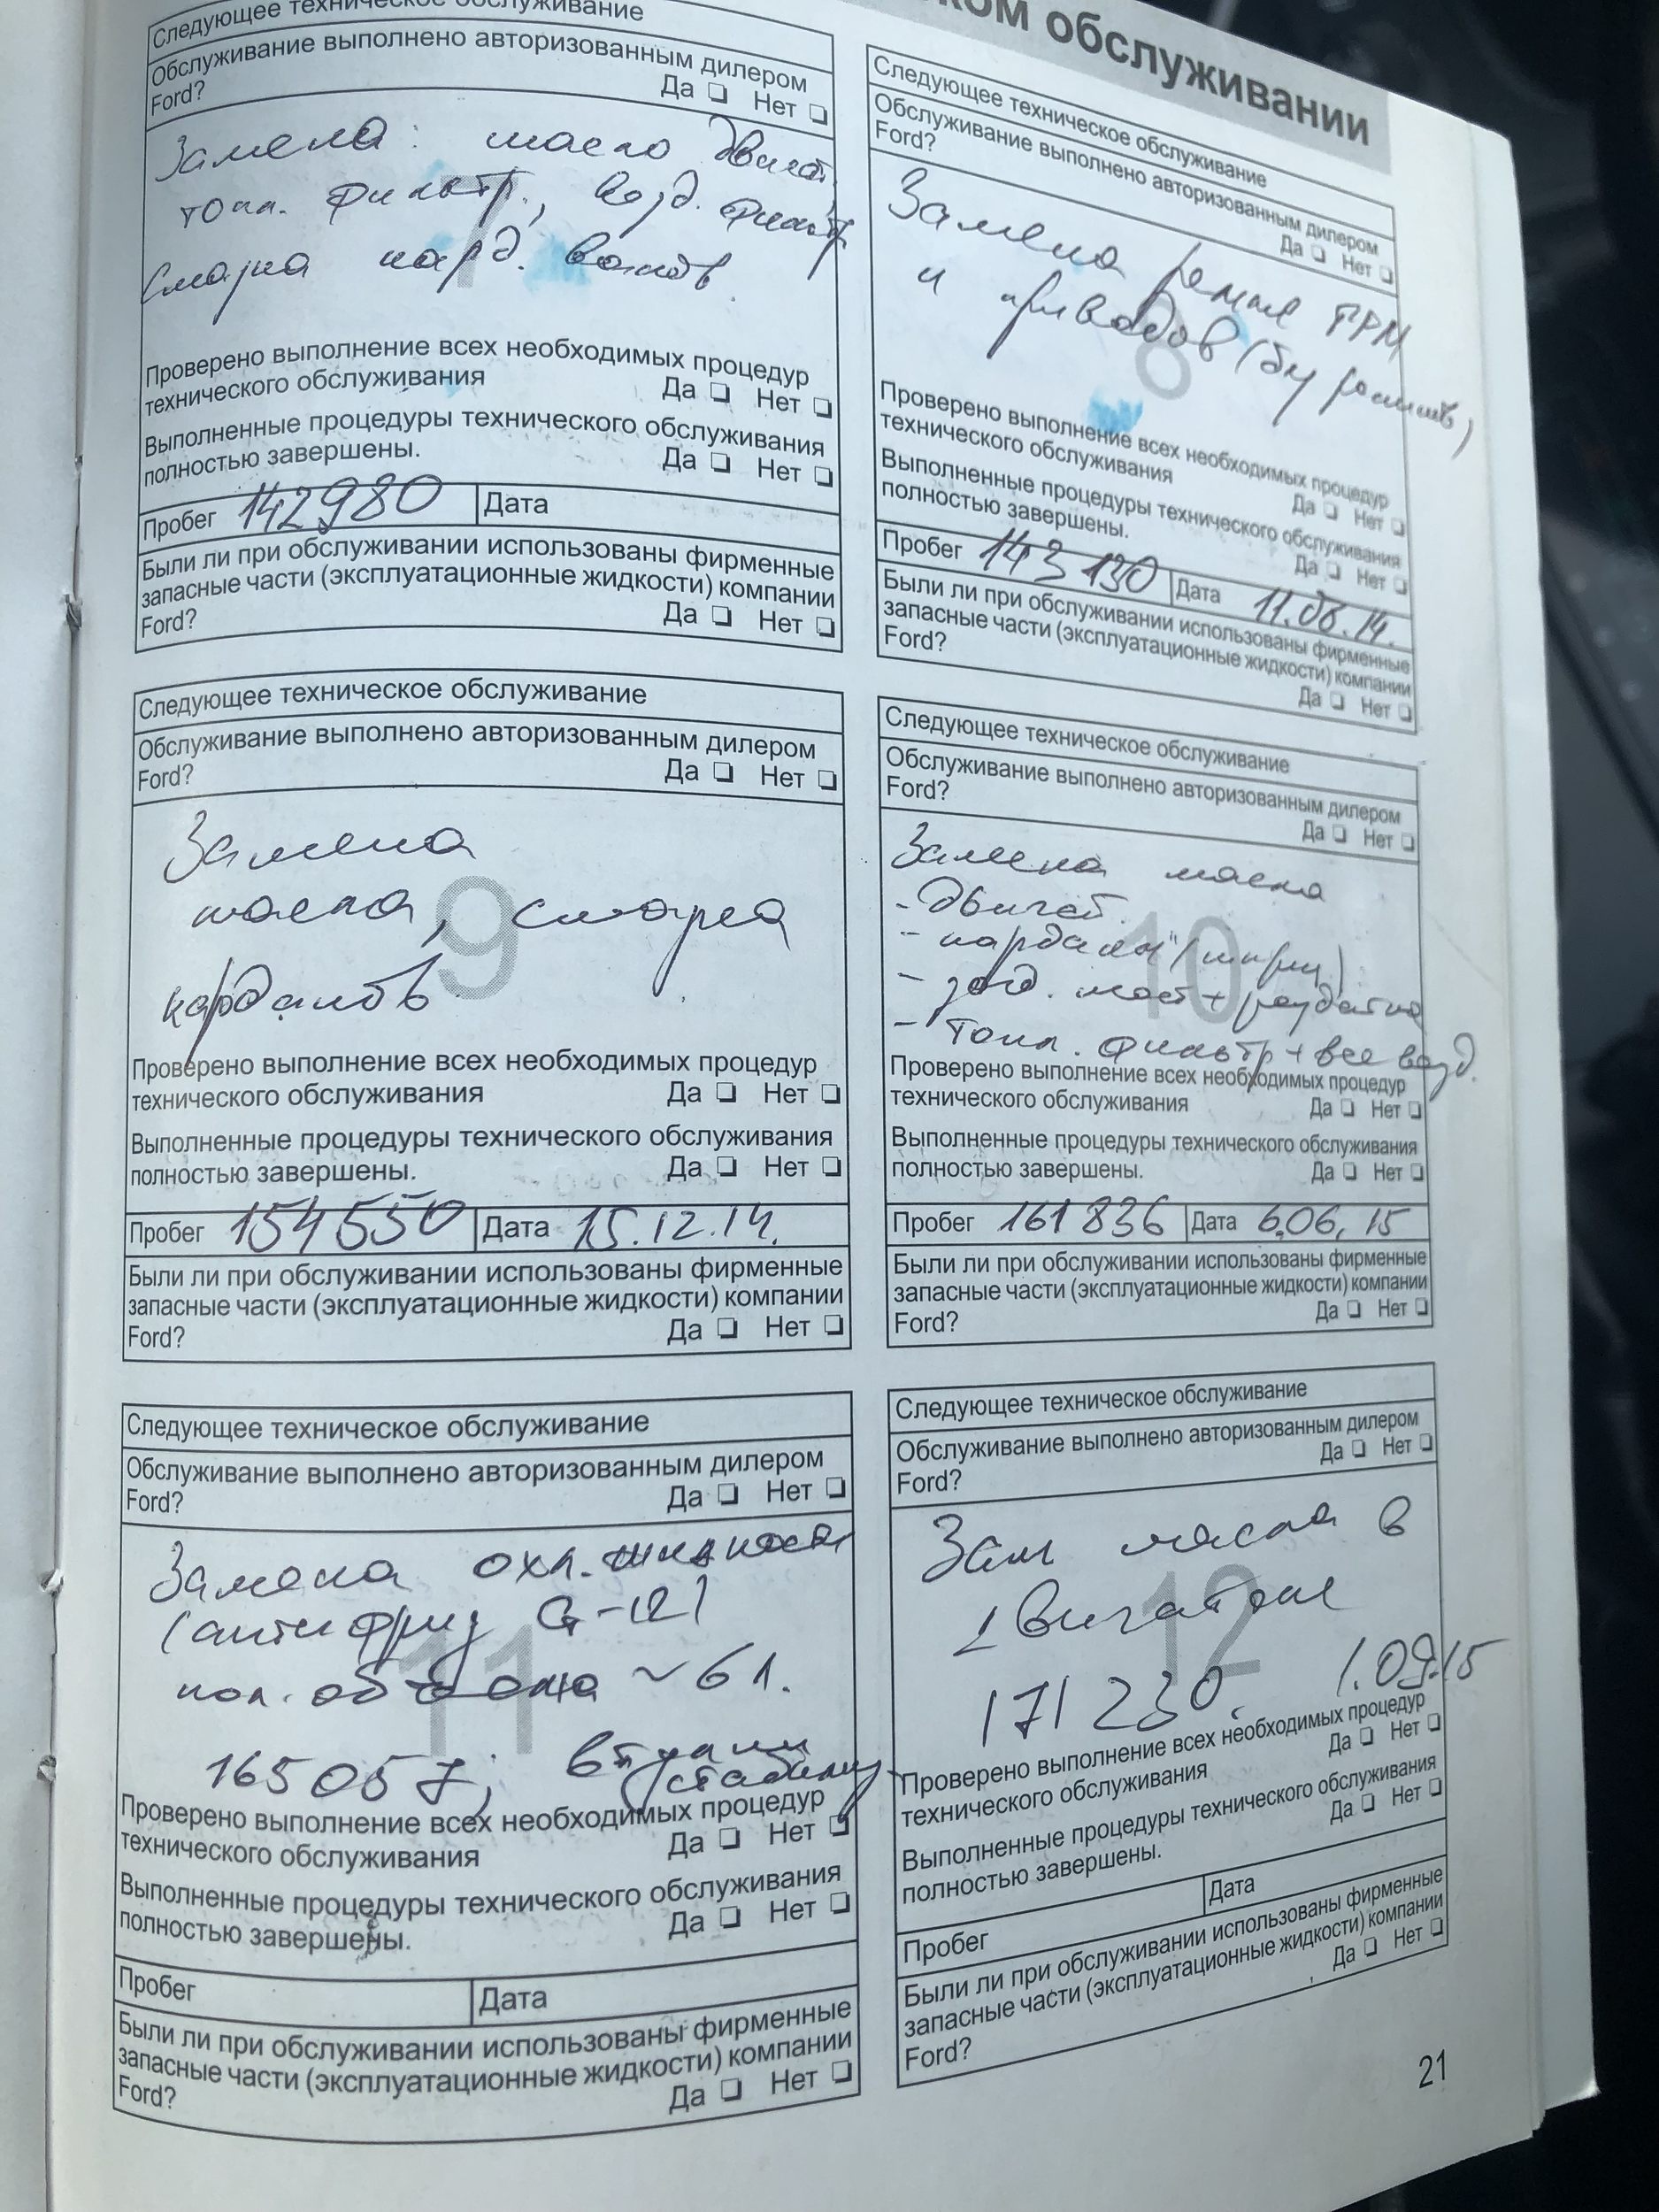 ком обслуживании
Следующее техническое обслуживание
Обслуживание выполнено авторизованным дилером
Ford? Да ❏ Нет ❏
Замена: масло двигат.
топл. фильтр., возд. фильтр
Смазка кард. валов.
7
Проверено выполнение всех необходимых процедур
технического обслуживания Да ❏ Нет ❏
Выполненные процедуры технического обслуживания
полностью завершены. Да ❏ Нет ❏
Пробег 142980 Дата
Были ли при обслуживании использованы фирменные
запасные части (эксплуатационные жидкости) компании
Ford? Да ❏ Нет ❏
Следующее техническое обслуживание
Обслуживание выполнено авторизованным дилером
Ford? Да ❏ Нет ❏
Замена ремня ГРМ
и приводов (бу
8
Проверено выполнение всех необходимых процедур
технического обслуживания Да ❏ Нет ❏
Выполненные процедуры технического обслуживания
полностью завершены. Да ❏ Нет ❏
Пробег 143130 Дата 11.08.14.
Были ли при обслуживании использованы фирменные
запасные части (эксплуатационные жидкости) компании
Ford? Да ❏ Нет ❏
Следующее техническое обслуживание
Обслуживание выполнено авторизованным дилером
Ford? Да ❏ Нет ❏
Замена
масла, смазка
карданов
9
Проверено выполнение всех необходимых процедур
технического обслуживания Да ❏ Нет ❏
Выполненные процедуры технического обслуживания
полностью завершены. Да ❏ Нет ❏
Пробег 154550 Дата 15.12.14.
Были ли при обслуживании использованы фирменные
запасные части (эксплуатационные жидкости) компании
Ford? Да ❏ Нет ❏
Следующее техническое обслуживание
Обслуживание выполнено авторизованным дилером
Ford? Да ❏ Нет ❏
Замена масла
- двигат.
- карданы (шприц)
- зад. мост + раздатка
- топл. фильтр + все возд.
10
Проверено выполнение всех необходимых процедур
технического обслуживания Да ❏ Нет ❏
Выполненные процедуры технического обслуживания
полностью завершены. Да ❏ Нет ❏
Пробег 161836 Дата 6.06, 15
Были ли при обслуживании использованы фирменные
запасные части (эксплуатационные жидкости) компании
Ford? Да ❏ Нет ❏
Следующее техническое обслуживание
Обслуживание выполнено авторизованным дилером
Ford? Да ❏ Нет ❏
Замена охл. жидкости
(антифриз G-12)
пол. объема ~ 6 л.
165057; втулки
стабилиз
11
Проверено выполнение всех необходимых процедур
технического обслуживания Да ❏ Нет ❏
Выполненные процедуры технического обслуживания
полностью завершены. Да ❏ Нет ❏
Пробег Дата
Были ли при обслуживании использованы фирменные
запасные части (эксплуатационные жидкости) компании
Ford? Да ❏ Нет ❏
Следующее техническое обслуживание
Обслуживание выполнено авторизованным дилером
Ford? Да ❏ Нет ❏
Зам масла в
двигателе
171230. 1.09.15
12
Проверено выполнение всех необходимых процедур
технического обслуживания Да ❏ Нет ❏
Выполненные процедуры технического обслуживания
полностью завершены. Да ❏ Нет ❏
Пробег Дата
Были ли при обслуживании использованы фирменные
запасные части (эксплуатационные жидкости) компании
Ford? Да ❏ Нет ❏
21